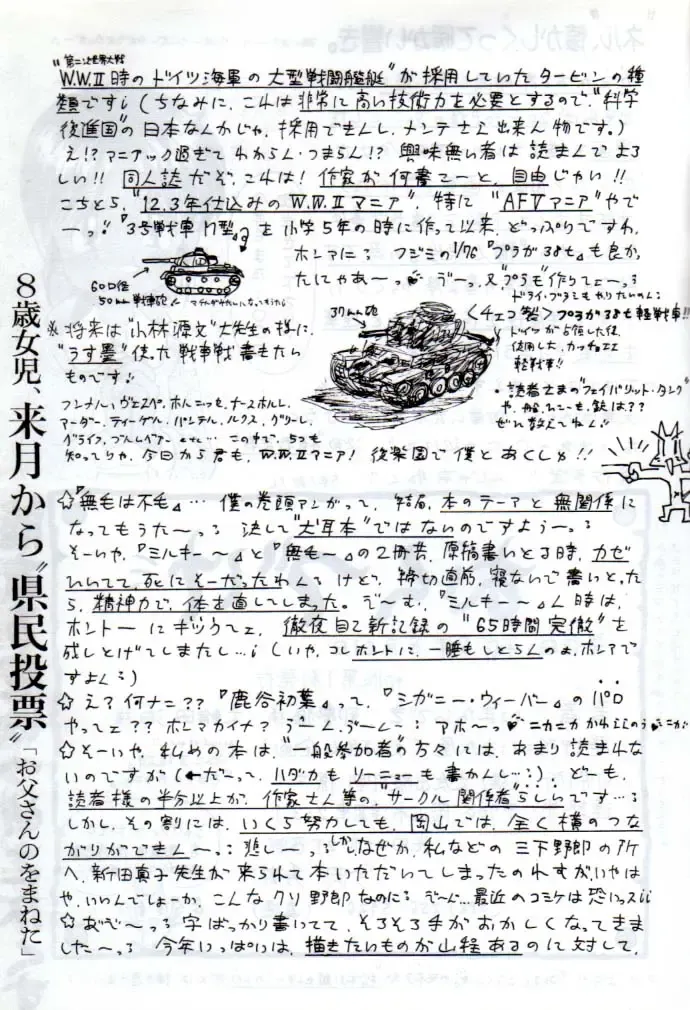 第二次世界大戦
"W.W.Ⅱ時のドイツ海軍の大型戦闘艦艇"が採用していたタービンの種
類ですi(ちなみに、これは非常に高い技術力を必要とするので、"科学
後進国"の日本なんかじゃ、採用できんし、メンテさえ出来ん物です。)
え!?マニアック過ぎてわからん・つまらん!?興味無い者は読まんでよろ
しい!!同人誌だぞ、これは!作家が何書てーと、自由じゃい!!
こちとら、"12.3年仕込みのW.W.Ⅱマニア"、特に"AFVマニア"やで
ーっ!『3号戦車N型』を小学5年の時に作って以来、どっぷりですわ、
ホンマに!フジミの1/76『プラガ38t』も良か
たにゃあ〜っ
60口径
50mm戦車砲
※将来は"小林源文"大先生の様に、
"うす墨"使った戦車戦書きたい
ものです!
37mm砲
<チェコ製>プラガ38t軽戦車!!
ドイツが占領した後、
使用した、カッチョエエ
軽戦車!!
・読者さまの"フェイバリット・タンク"
や、船、ひこーき、銃は??
ぜひ教えてねん!
フンメル、ヴェスペ、ホルニッセ、ナースホルン、
マーダー、ティーゲル、パンテル、ルクス、グリーレ、
この中で、5つも
知ってりゃ、今日から君も、W.W.Ⅱマニア!後楽園で僕とあくしゅ!!
☆『無毛は不毛』…僕の巻頭マンガって、結局、本のテーマと無関係に
なってもうた〜っ 決して"犬耳本"ではないのですよぅーっ
そーいや、『ミルキー〜』と『無毛〜』の2冊共、原稿書いとる時、カゼ
ひいてて、死にそーだったわんてけど、締切直前、寝ないで書いとった
ら、精神力で、体を直してしまった。ぞ〜む、『ミルキー〜』ん時は、
ホントーにギックてェ、徹夜自己新記録の"65時間完徹"を
成しとげてしまたし…i(いや、コレホントに、一睡もしとらんのョ、ホンマで
すよん)
☆え?何ナニ??『鹿谷初葉』って、『シガニー・ウィーバー』のパロ
やってェ??ホンマカイナ?うーん、うーん アホ〜っ
☆そーいや、私めの本は、"一般参加者"の方々には、あまり読まれな
いのですが(←だ〜って、ハダカもソーニューも書かんし…)、どーも、
読者様の半分以上が、作家さん等の、"サークル関係者"らしいです…
しかし、その割には、いくら努力しても、岡山では、全く横のつな
がりができん〜っ 悲しーっ しかし、なぜか、私などの三下野郎の所
へ、新田真子先生が来られて本いただいてしまったのれすが、いはや
や、いいんでしょーか、こんなクソ野郎なのに ぞ〜ん…最近のコミケは恐いっスii
☆おぞ〜っ 字ばっかり書いてて、そろそろ手がおかしくなってきま
した〜っ 今年いっぱいは、描きたいものが山程あるのに対して、
8歳女児、来月から"県民投票"
「お父さんのをまねた」